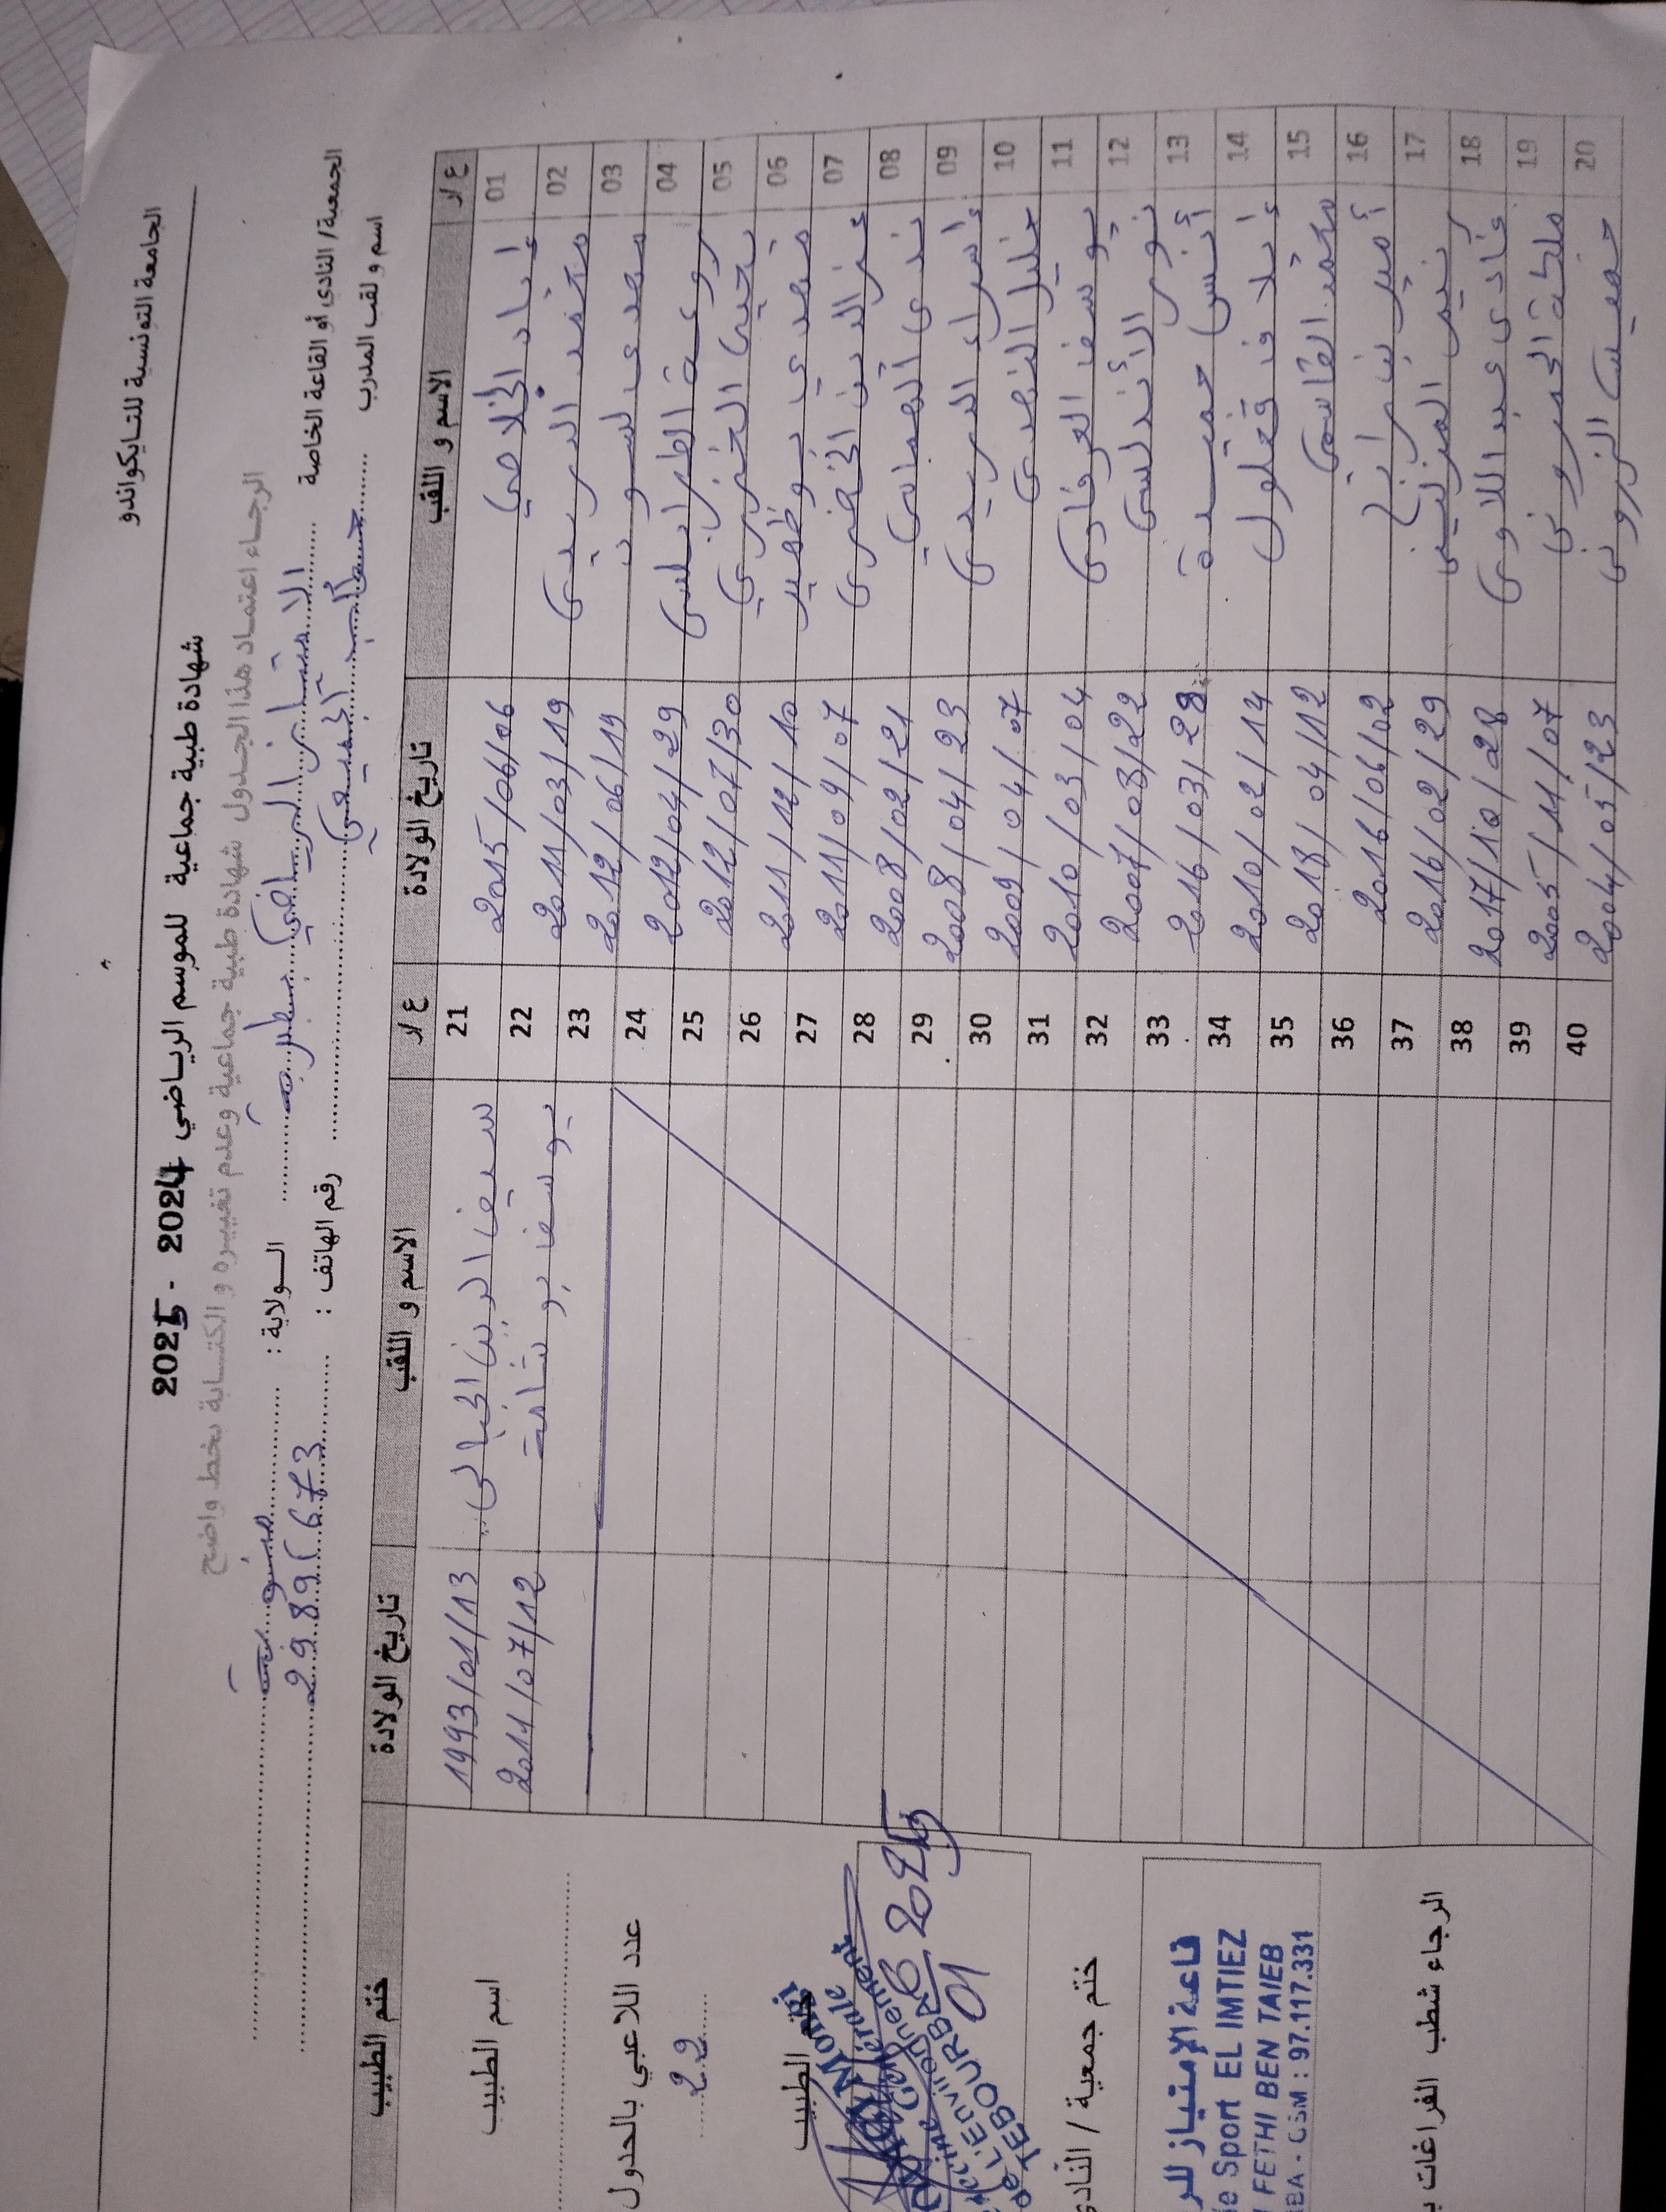 الجامعة التونسية للتايكواندو
شهادة طبية جماعية للموسم الرياضي 2024 - 2025
الرجاء اعتماد هذا الجدول شهادة طبية جماعية وعدم تغييره و الكتابة بخط واضح
الجمعية/ النادي أو القاعة الخاصة الامتياز الرياضي بطبربة الولاية : منوبة
اسم و لقب المدرب رقم الهاتف : 29896673
ع/ر الاسم و اللقب تاريخ الولادة ع/ر الاسم و اللقب تاريخ الولادة ختم الطبيب
01 إياد الخلاصي 2015/06/06 21 سيف الدين الجبالي 1993/01/13
02 محمد الدريدي 2011/03/19 22 يوسف بوشامة 2011/07/12
03 2012/06/19 23
04 روعة الطرابلسي 2012/04/29 24
05 يحيى الخضيري 2012/07/30 25
06 2011/12/10 26
07 عز الدين الخضري 2011/09/07 27
08 ندى الصمامي 2008/02/21 28
09 إسراء الدريدي 2008/04/23 29
10 خليل النصري 2009/04/07 30
11 يوسف العرفاوي 2010/03/04 31
12 نور الأندلسي 2007/08/22 32
13 أنس حميدة 2016/03/28 33
14 إيلاف قعلول 2010/02/14 34
15 محمد القاسمي 2018/04/12 35
16 أمير بن رابح 2016/06/02 36
17 2016/02/29 37
18 فادي عبد اللاوي 2017/10/28 38
19 ملكة الحمروني 2005/11/07 39
20 خميس الزروني 2004/05/23 40
اسم الطبيب
عدد اللاعبي بالجدول
22
ختم الطبيب
06 01 2025
ختم جمعية / النادي
قاعة الإمتياز للر
e Sport EL IMTIEZ
FETHI BEN TAIEB
BA - GSM : 97.117.331
الرجاء شطب الفراغات ب